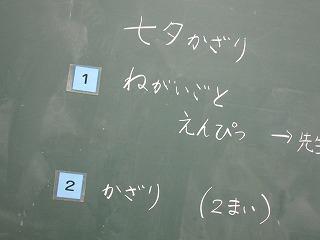 七夕かざり
1 ねがいごと
えんぴつ → 先生
2 かざり (2まい)